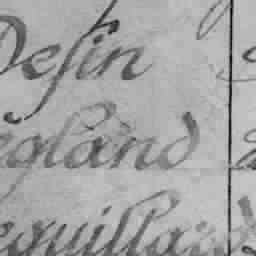 Desin
égland
equillard